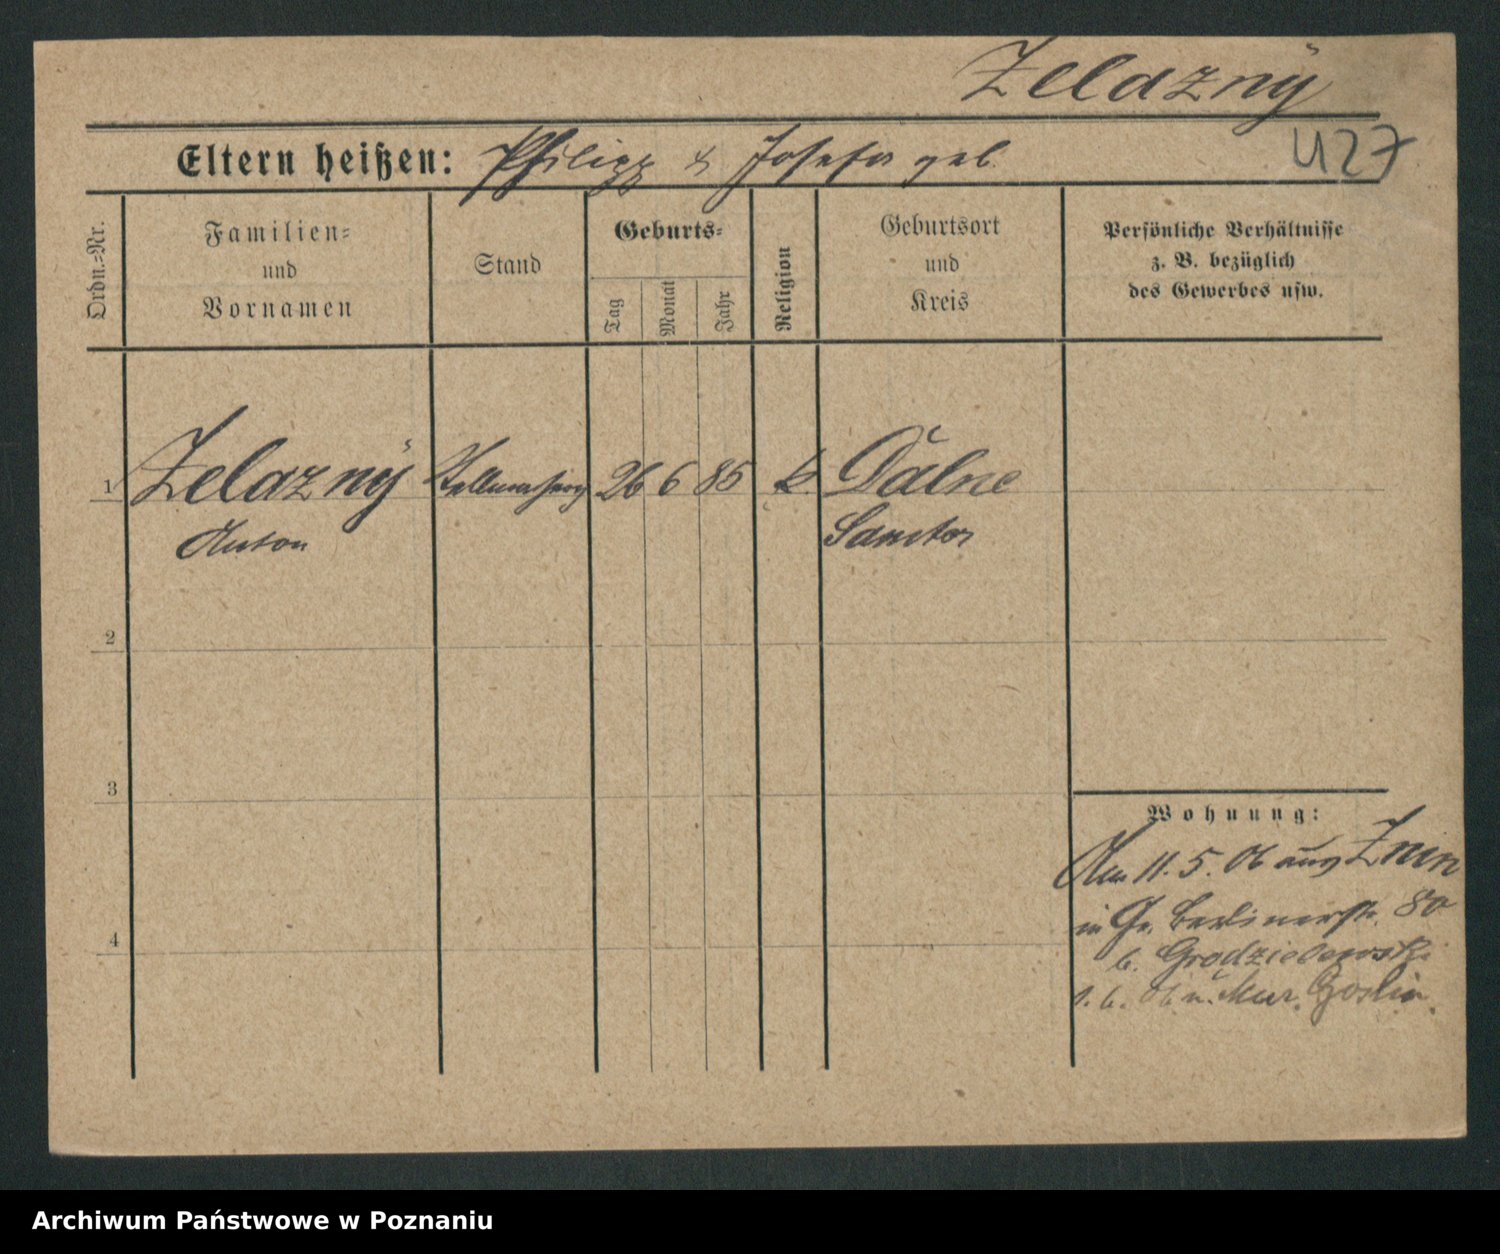 Zelazny
Eltern heißen: Philipp & Josefa geb.
427
Ordn.=Nr.
Familien=
und
Vornamen
Stand
Geburts=
Tag
Monat
Jahr
Religion
Geburtsort
und
Kreis
Persönliche Verhältnisse
z. B. bezüglich
des Gewerbes usw.
1 Zelazny 26 6 85 k. Dalne
Anton Samter
2
3
4
Wohnung:
Am 11. 5. 06 aus Znin
in Gr. Berlinerstr. 80
b.
1. 6. 06 n. Mur. Goslin.
Archiwum Państwowe w Poznaniu